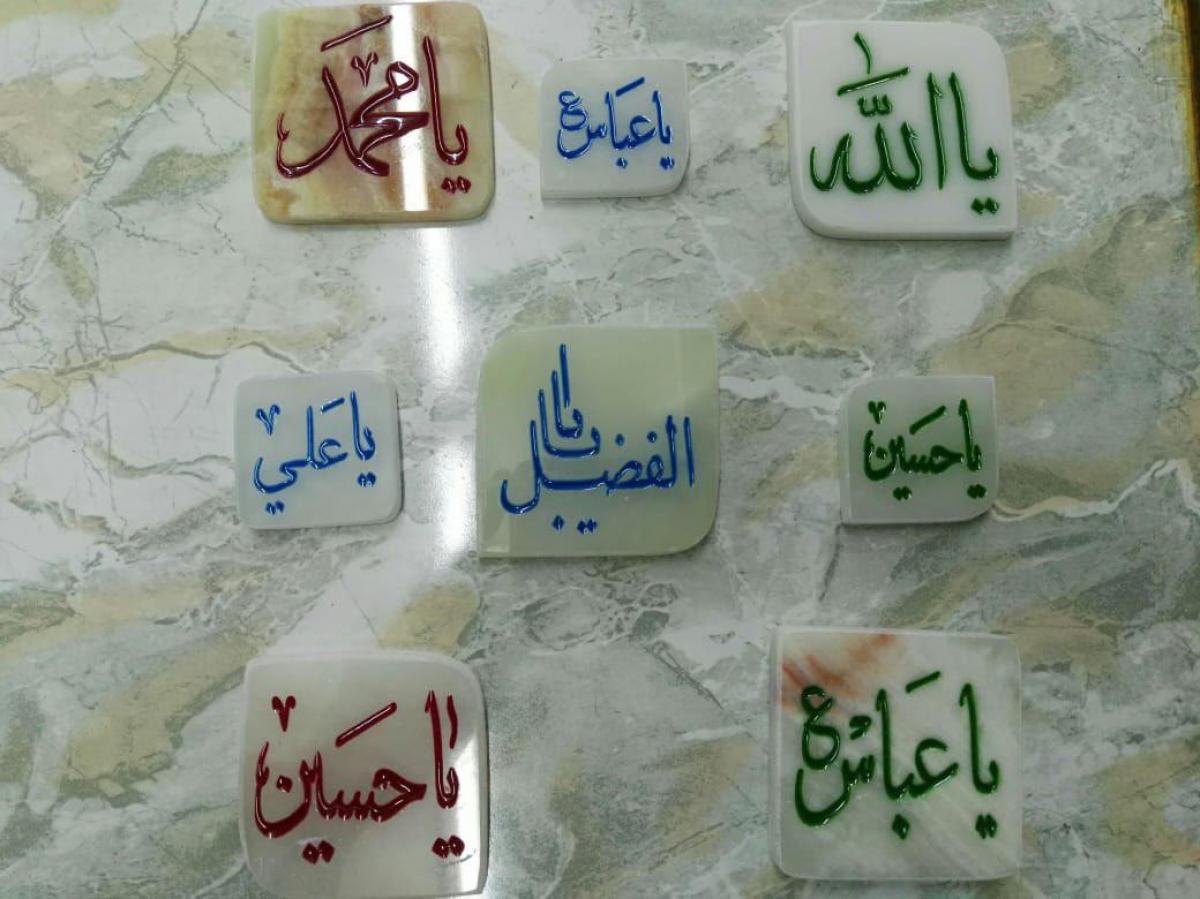 يا الله
يا عباس ع
يا محمد
يا حسين
يا ابا الفضل
يا علي
يا عباس ع
يا حسين